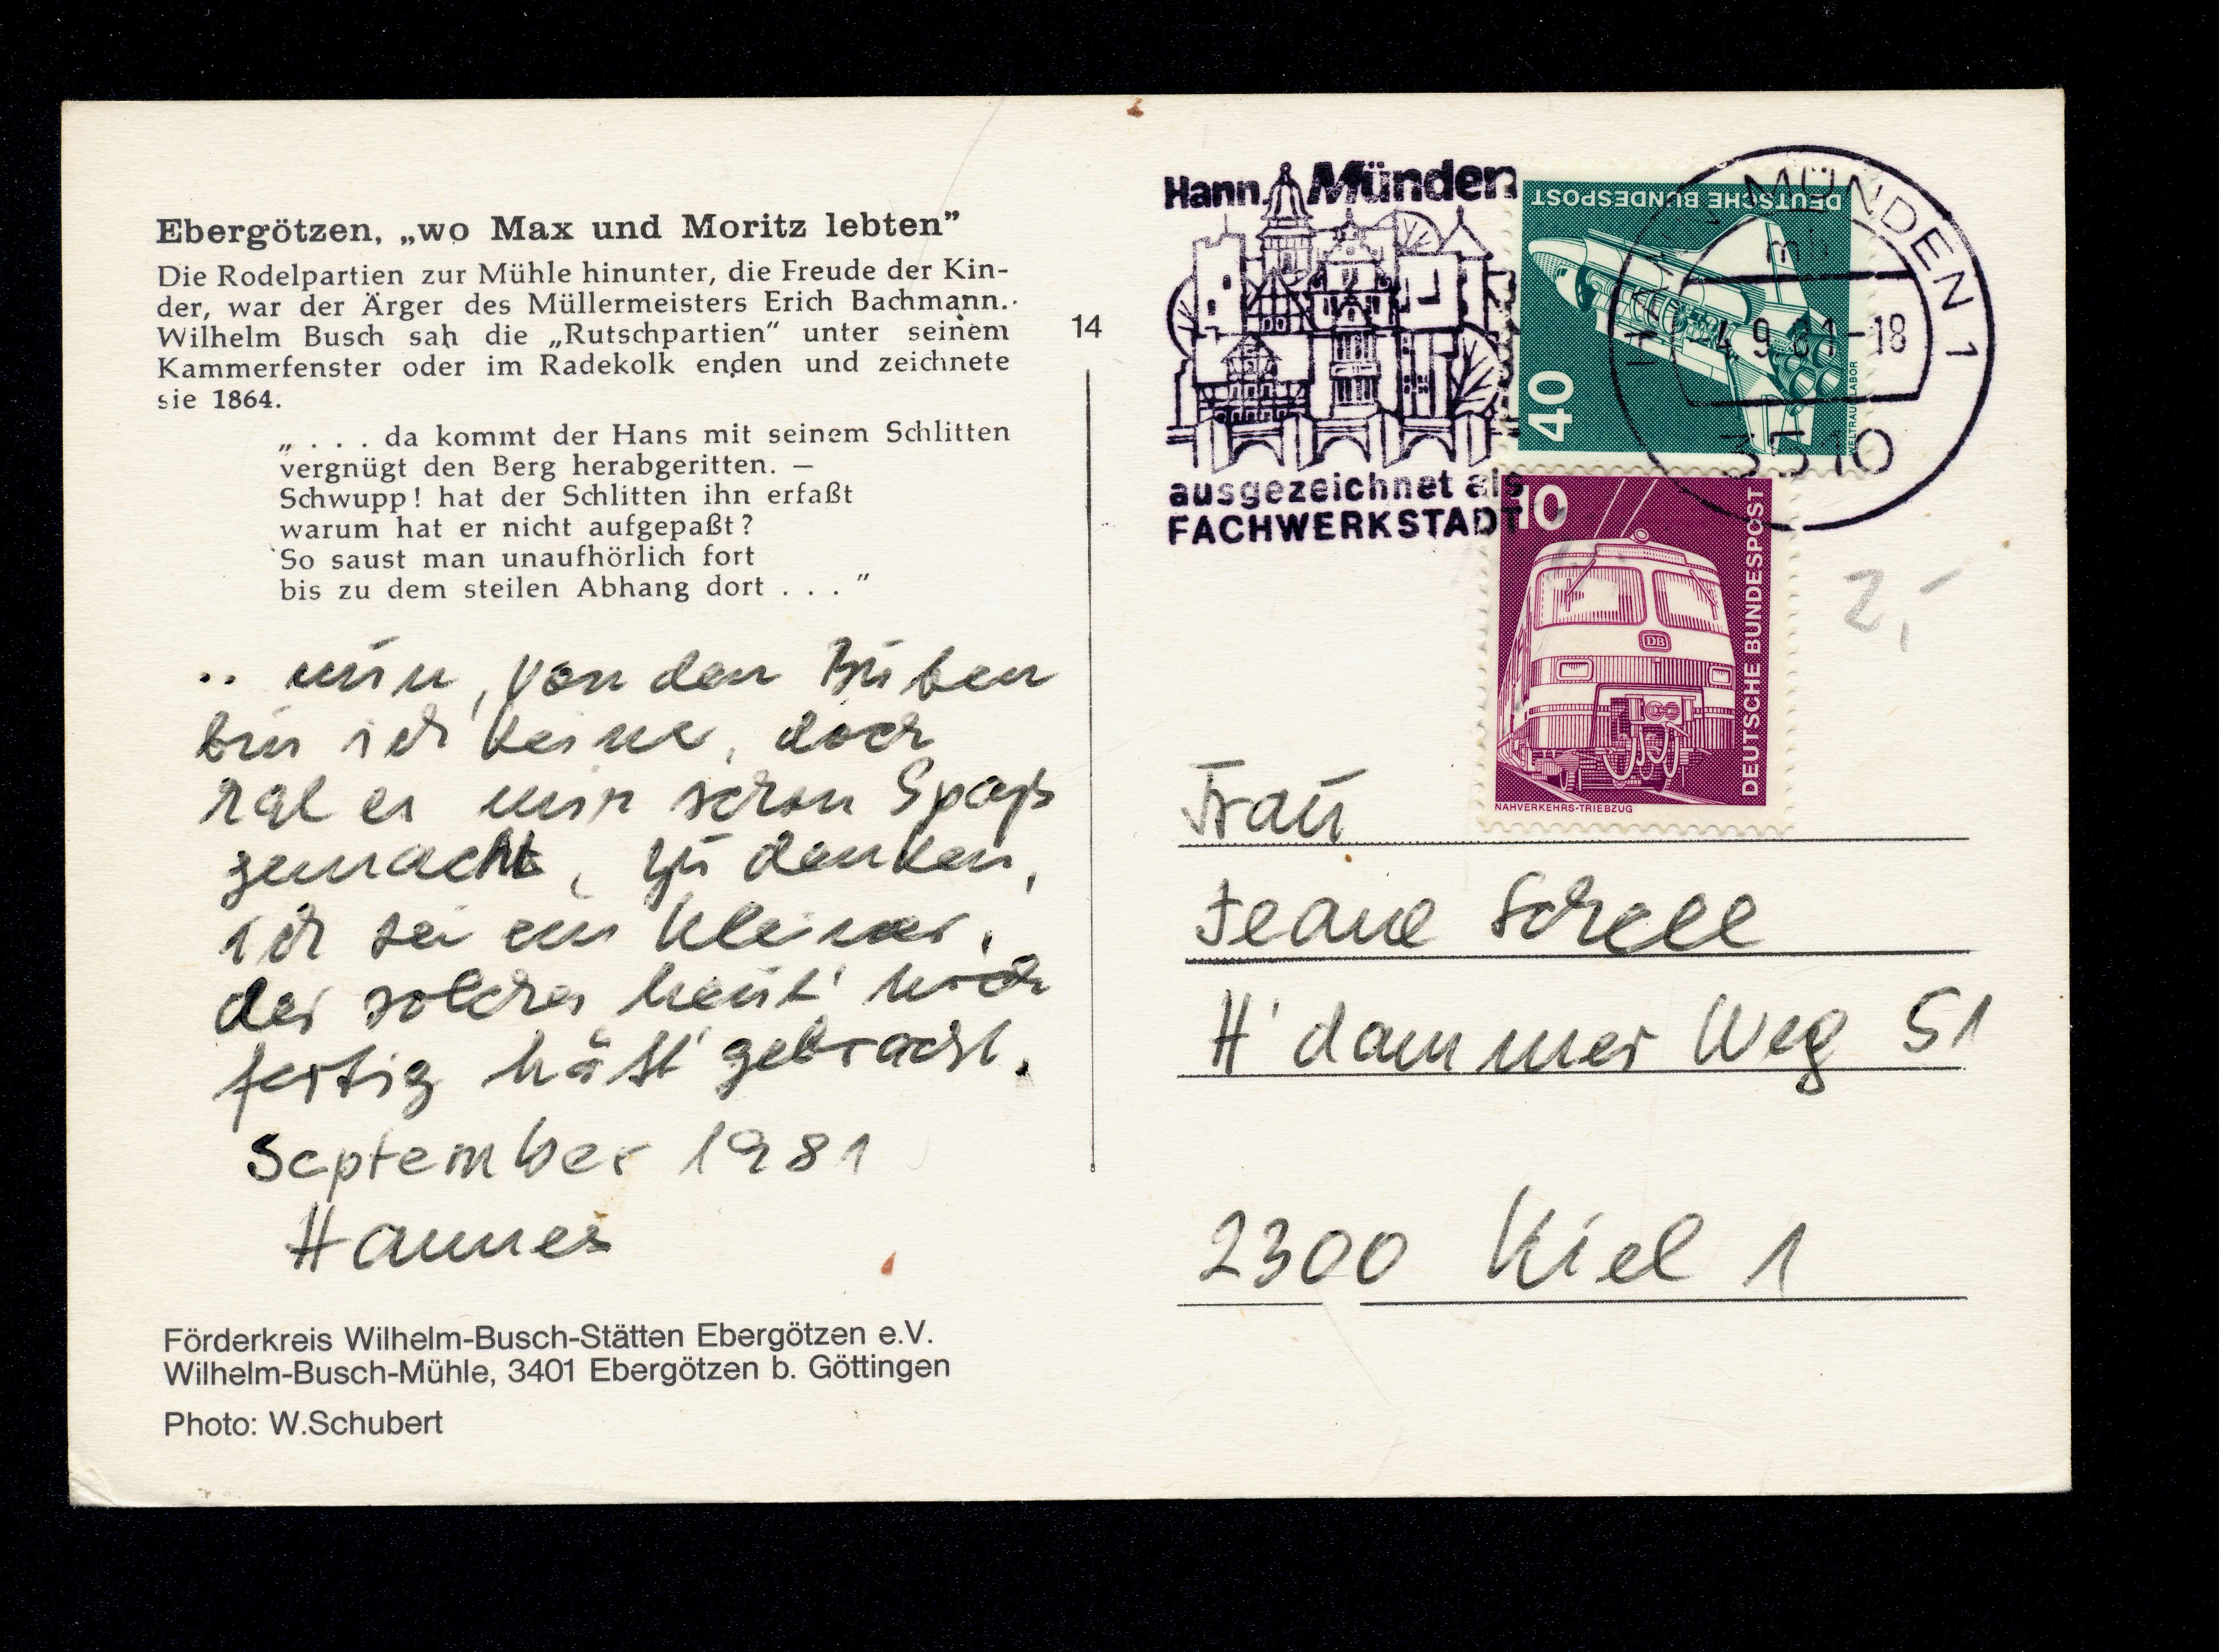 Ebergötzen, „wo Max und Moritz lebten”
Die Rodelpartien zur Mühle hinunter, die Freude der Kin-
der, war der Ärger des Müllermeisters Erich Bachmann.
Wilhelm Busch sah die „Rutschpartien“ unter seinem
Kammerfenster oder im Radekolk enden und zeichnete
sie 1864.
„ . . . da kommt der Hans mit seinem Schlitten
vergnügt den Berg herabgeritten. —
Schwupp! hat der Schlitten ihn erfaßt
warum hat er nicht aufgepaßt?
So saust man unaufhörlich fort
bis zu dem steilen Abhang dort . . . ”
.. nun, von den Buben
bin ich keiner, doch
hat es mir schon Spaß
gemacht, zu denken,
ich sei ein kleiner,
der solches heut' noch
fertig hätt' gebracht.
September 1981
Hannes
Förderkreis Wilhelm-Busch-Stätten Ebergötzen e.V.
Wilhelm-Busch-Mühle, 3401 Ebergötzen b. Göttingen
Photo: W.Schubert
14
Hann. Münden
ausgezeichnet als
FACHWERKSTADT
DEUTSCHE BUNDESPOST
40
WELTRAUMLABOR
MÜNDEN 1
mn
4.9.81-18
3510
10
DEUTSCHE BUNDESPOST
DB
NAHVERKEHRS-TRIEBZUG
2,-
Frau
Schell
H'dammer Weg 51
2300 Kiel 1